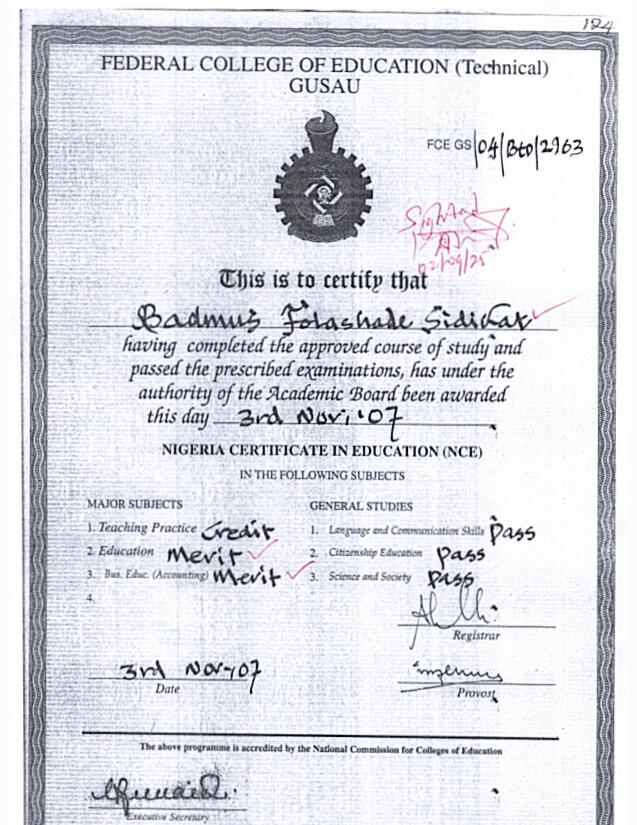 124
FEDERAL COLLEGE OF EDUCATION (Technical)
GUSAU
FCE GS/04/Bed/2963
Sighted
02/09/25
This is to certify that
Badmus Folashade Sidikat
having completed the approved course of study and
passed the prescribed examinations, has under the
authority of the Academic Board been awarded
this day 3rd Nov, '07
NIGERIA CERTIFICATE IN EDUCATION (NCE)
IN THE FOLLOWING SUBJECTS
MAJOR SUBJECTS
1. Teaching Practice Credit
2. Education Merit
3. Bus. Educ. (Accounting) Merit
4.
GENERAL STUDIES
1. Language and Communication Skills Pass
2. Citizenship Education Pass
3. Science and Society Pass
Registrar
3rd Nov, 07
Date
Provost
The above programme is accredited by the National Commission for Colleges of Education
Executive Secretary